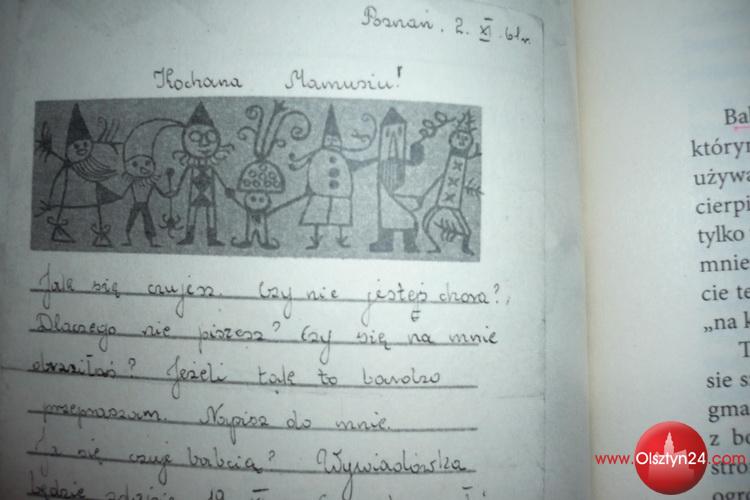 Poznań, 2. XI .61r.
Kochana Mamusiu!
Jak się czujesz. Czy nie jesteś chora?,
Dlaczego nie piszesz? Czy się na mnie
obraziłaś? Jeżeli tak to bardzo
przepraszam. Napisz do mnie.
się czuje babcia? Wywiadówka
będzie
Bal
którym
używa
cierpi
tylko
mnie
cie te
„na k
T
sie s
gma
z bo
stro
www.Olsztyn24.com